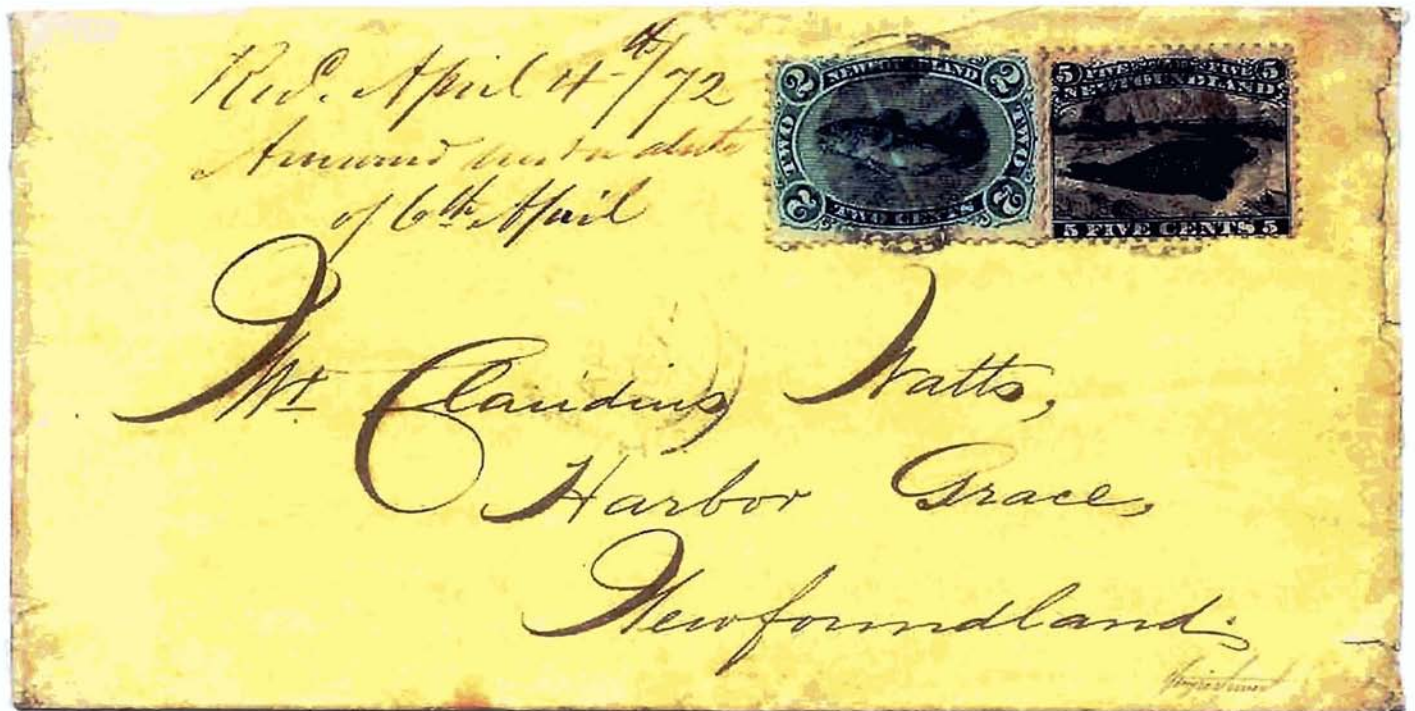 Recd. April 4th/72
under date
of 6th April
2 NEWFOUNDLAND 2
TWO TWO
2 TWO CENTS 2
5 FIVE FIVE 5
NEWFOUNDLAND
5 FIVE CENTS 5
Mr. Claudius Watts,
Harbor Grace,
Newfoundland.